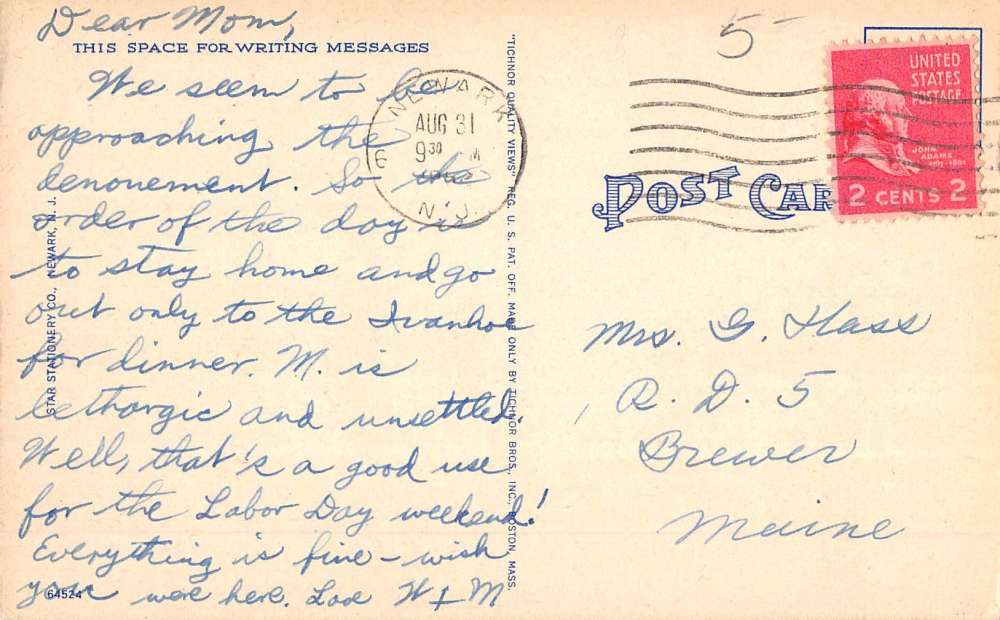 Dear Mom,
THIS SPACE FOR WRITING MESSAGES
We seem to be
approaching the
denouement. So the
order of the day is
to stay home and go
out only to the Ivanhoe
for dinner. M. is
lethargic and unsettled.
Well, that's a good use
for the Labor Day weekend!
Everything is fine - wish
you were here. Love W + M
64524
STAR STATIONERY CO., NEWARK, N. J.
"TICHNOR QUALITY VIEWS" REG. U. S. PAT. OFF. MADE ONLY BY TICHNOR BROS., INC., BOSTON, MASS.
NEWARK
AUG 31
9 30 M
6
N.J.
5-
UNITED
STATES
POSTAGE
JOHN
ADAMS
2 CENTS 2
POST CAR
Mrs. G. Hass
R. D. 5
Brewer
Maine